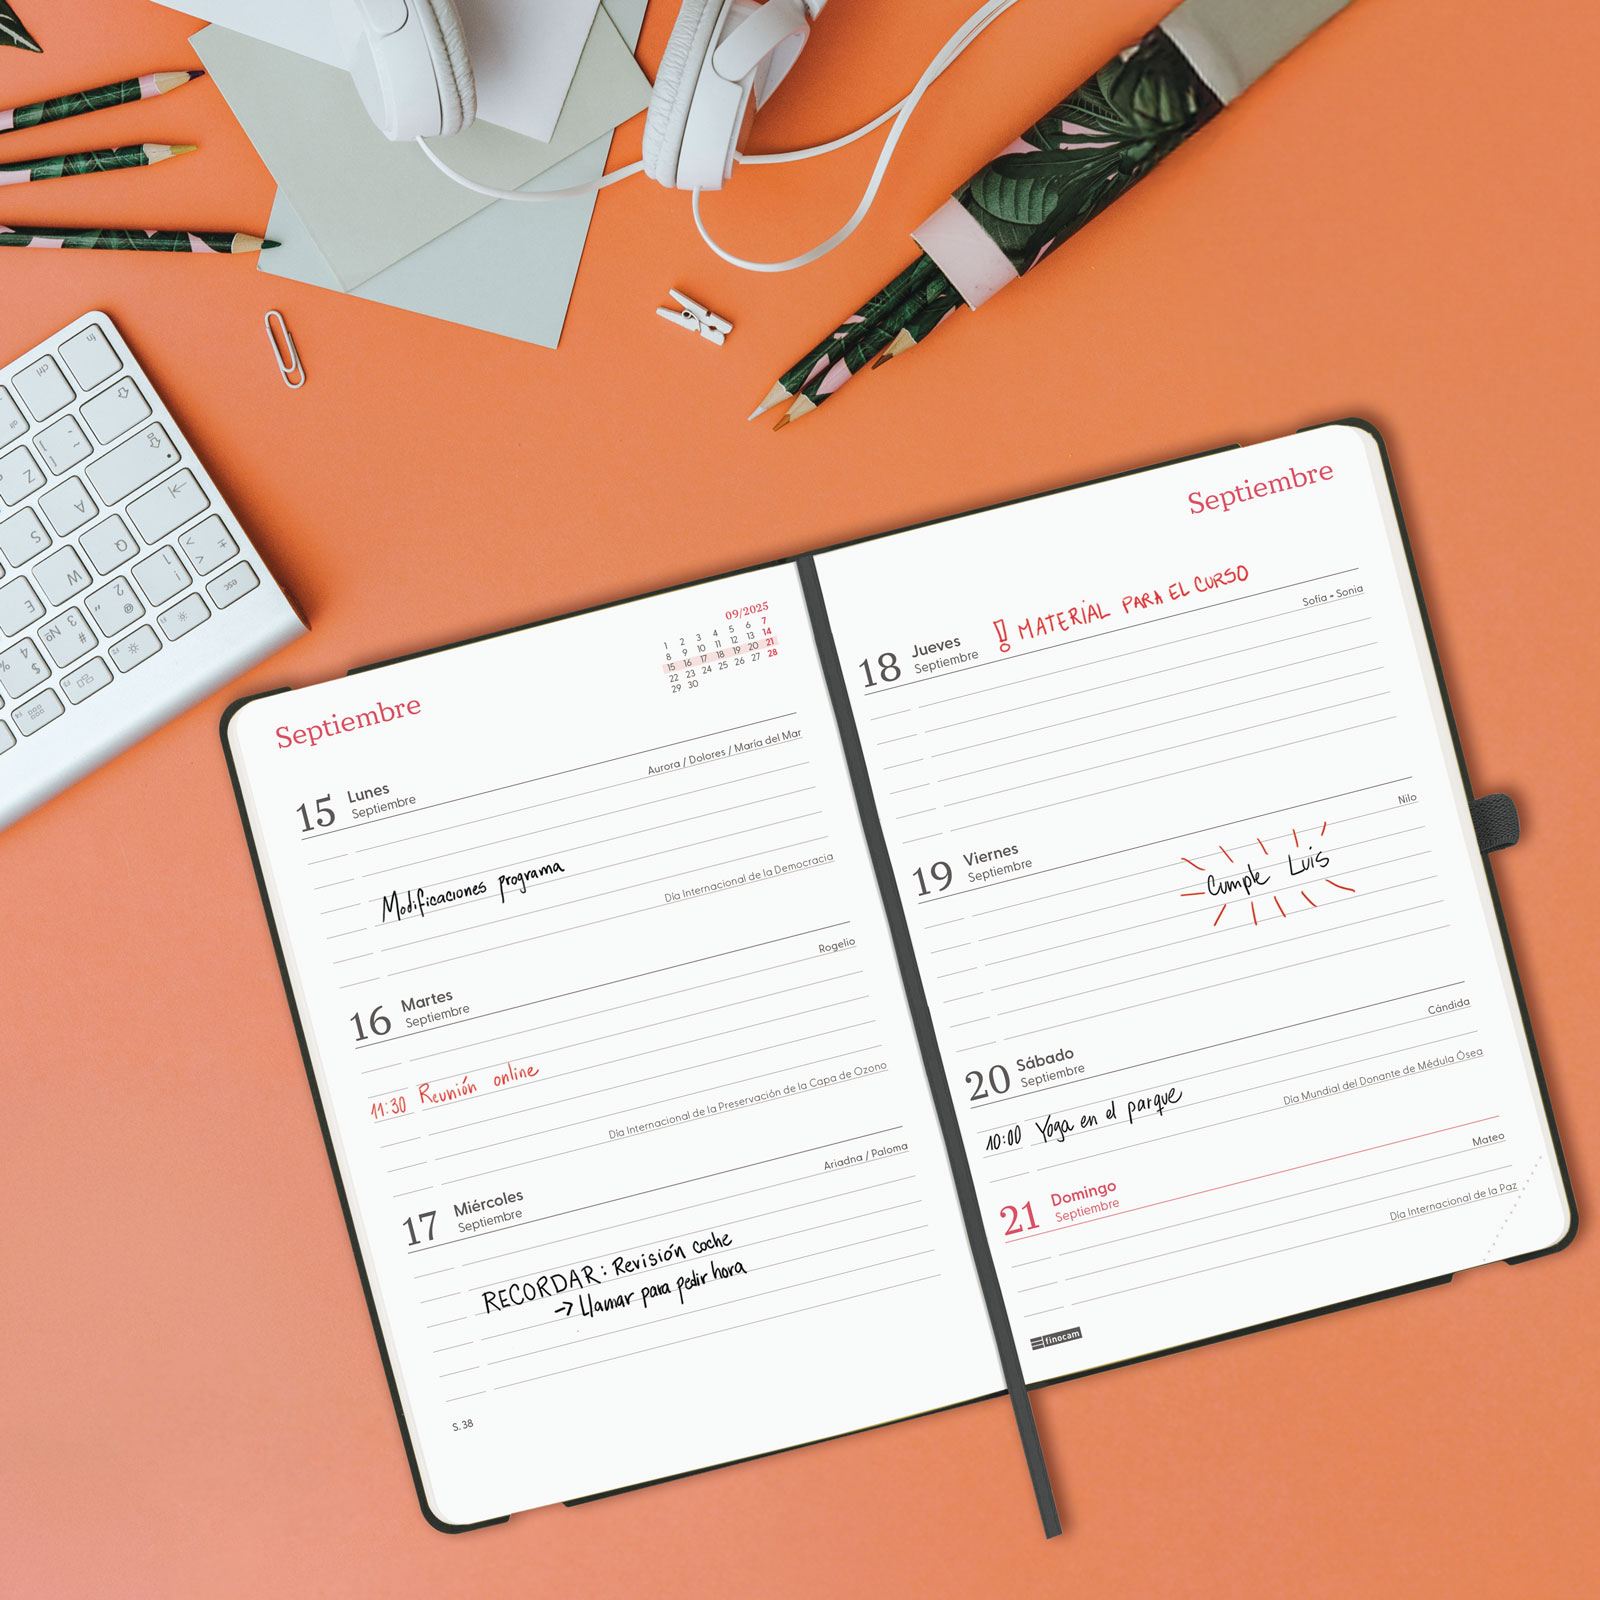 Septiembre
09/2025
1 2 3 4 5 6 7
8 9 10 11 12 13 14
15 16 17 18 19 20 21
22 23 24 25 26 27 28
29 30
15 Lunes
Septiembre
Aurora / Dolores / María del Mar
Modificaciones programa
Día Internacional de la Democracia
16 Martes
Septiembre
Rogelio
11:30 Reunión online
Día Internacional de la Preservación de la Capa de Ozono
17 Miércoles
Septiembre
Ariadna / Paloma
RECORDAR: Revisión coche
→ Llamar para pedir hora
S. 38
Septiembre
18 Jueves
Septiembre
! MATERIAL PARA EL CURSO
Sofía - Sonia
19 Viernes
Septiembre
Nilo
Cumple Luis
20 Sábado
Septiembre
Cándida
10:00 Yoga en el parque
Día Mundial del Donante de Médula Ósea
21 Domingo
Septiembre
Mateo
Día Internacional de la Paz
finocam
fn
ctrl
alt
Z
A
S
Q
W
E
esc